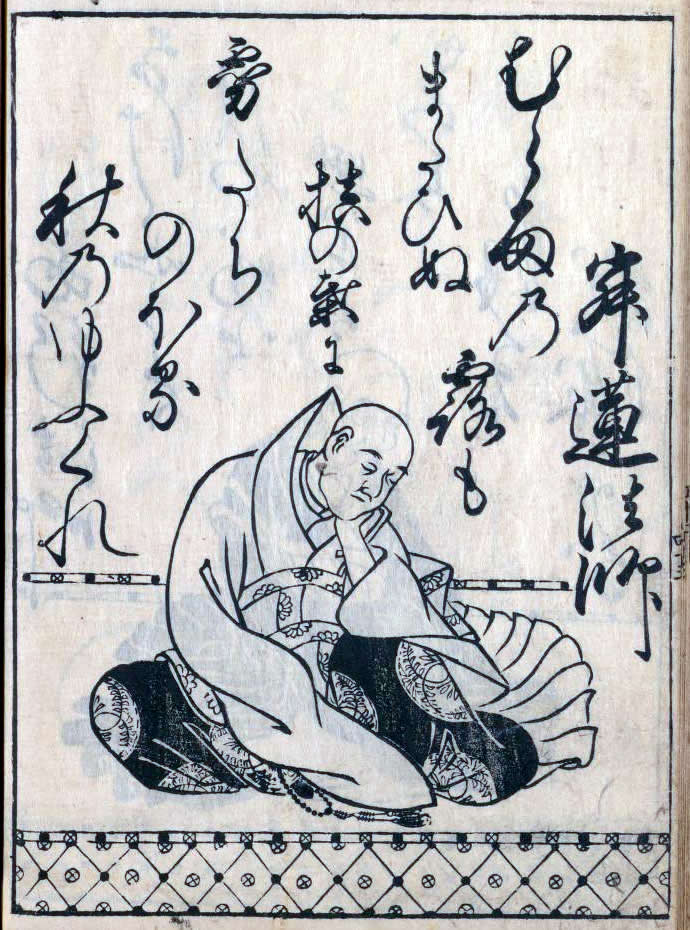 寂蓮法師
むら雨乃
露も
またひぬ
槙の葉に
霧たち
のほる
秋乃ゆふくれ